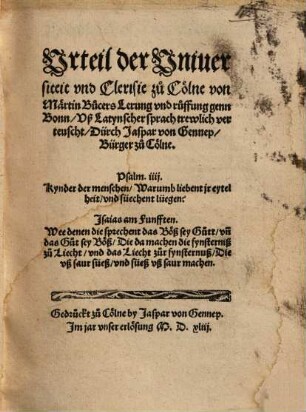 Urteil der Uniuer
siteit vnd Clerisie zů Cölne von
Märtin Bůcers Lerung vnd růffung genn
Bonn/ Vß Latynscher sprach trewlich ver
teuscht/ Dürch Jaspar von Gennep/
Bürger zů Cölne.
Psalm. iiij.
Kynder der menschen/ Warumb liebent jr eytel
heit/ vnd süechent lüegen?
Isaias am funfften.
Wee denen die sprechent das Böß sey Gůt/ vñ
das Gůt sey Böß/ Die da machen die fynsterniß
zů Liecht/ vnd das Liecht zůr fynsternuß/ Die
vß saur süeß/ vnd süeß vß saur machen.
Gedrückt zů Cölne by Jaspar von Gennep.
Im jar vnser erlösung M. D. xliij.